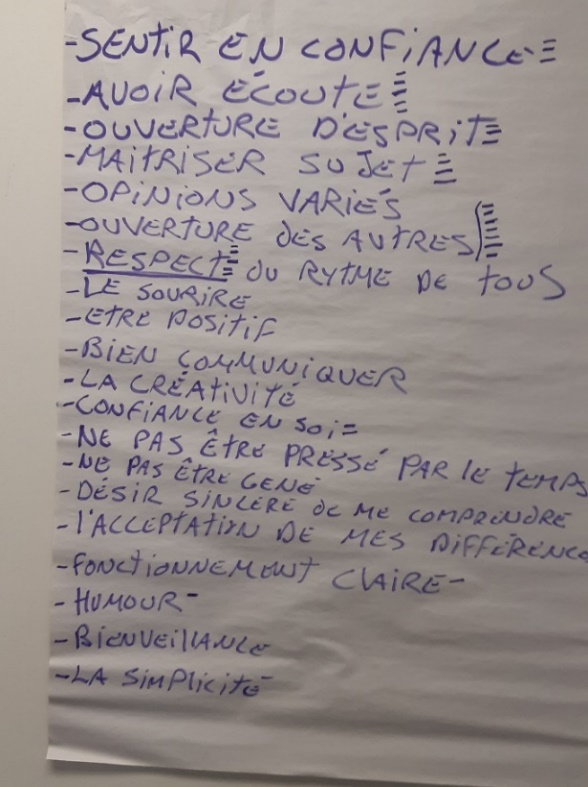 -SENTIR EN CONFIANCE
-AVOIR ÉCOUTE
-OUVERTURE D'ESPRIT
-MAITRISER SUJET
-OPINIONS VARIÉS
-OUVERTURE DES AUTRES
-RESPECT DU RYTME DE TOUS
-LE SOURIRE
-ETRE POSITIF
-BIEN COMMUNIQUER
-LA CRÉATIVITÉ
-CONFIANCE EN SOI
-NE PAS ÊTRE PRESSÉ PAR LE TEMPS
-NE PAS ÊTRE GENÉ
-DÉSIR SINCÈRE DE ME COMPRENDRE
-L'ACCEPTATION DE MES DIFFÉRENCE
-FONCTIONNEMENT CLAIRE-
-HUMOUR-
-BIENVEILLANCE
-LA SIMPLICITÉ